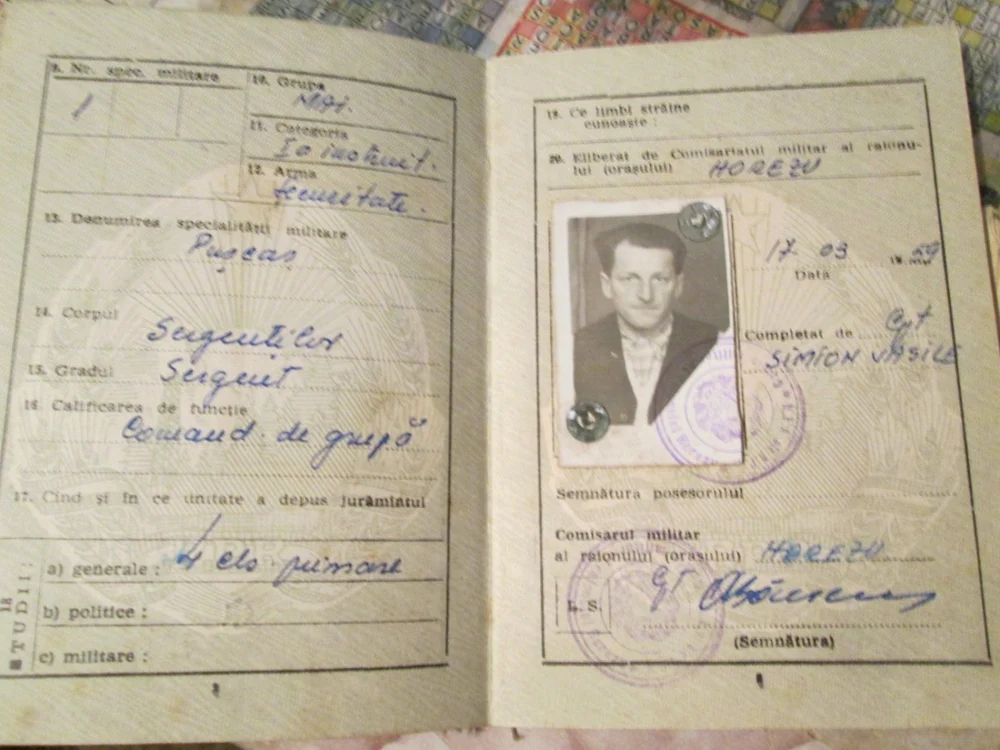 9. Nr. spec. militare
1
10. Grupa
MAI.
11. Categoria
I-a instruit.
12. Arma
Securitate.
13. Denumirea specialităţii militare
Puşcaş
14. Corpul
Sergenţilor
15. Gradul
Sergent
16. Calificarea de funcţie
Comand. de grupă
17. Cînd şi în ce unitate a depus jurămîntul
18
STUDII:
a) generale : 4 cls primare
b) politice :
c) militare :
19. Ce limbi străine
cunoaşte :
20. Eliberat de Comisariatul militar al raionu-
lui (oraşului) HOREZU
17 03 19 59
Data
Completat de Cpt
SIMION VASILE
Semnătura posesorului
Comisarul militar
al raionului (oraşului) HOREZU
L. S.
(Semnătura)